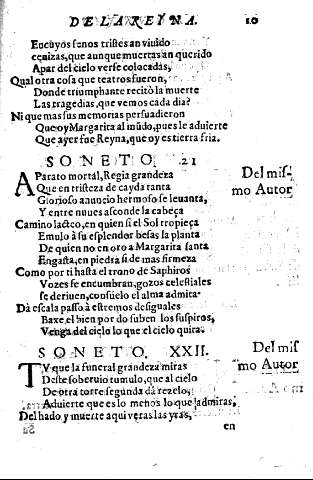 DE LA REYNA. 10
En cuyos senos tristes an viuido
cenizas, que aunque muertas an querido
Apar del cielo verse colocadas,
Qual otra cosa que teatros fueron,
Donde triumphante recitò la muerte
Las tragedias, que vemos cada dia?
Ni que mas sus memorias persuadieron
Que oy Margarita al mũdo, pues le aduierte
Que ayer fue Reyna, que oy es tierra fria.
SONETO. 21
Del mis-
mo Autor
APARATO mortal, Regia grandeza
Que en tristeza de cayda tanta
Glorioso anuncio hermoso se leuanta,
Y entre nuues asconde la cabeça
Camino lacteo, en quien si el Sol tropieça
Emulo à su esplendor besas la planta
De quien no en oro a Margarita santa
Engasta, en piedra si de mas firmeza
Como por ti hasta el trono de Saphiros
Vozes se encumbran, gozos celestiales
se deriuen, consuelo el alma admita.
Dà escala passo à estremos desiguales
Baxe el bien por do suben los suspiros,
Venga del cielo lo que el cielo quita.
SONETO. XXII.
Del mis
mo Autor
TY que la funeral grandeza miras
Deste soberuio tumulo, que al cielo
De otra torre segunda dà rezelo,
Aduierte que es lo menos lo que admiras,
Del hado y muerte aqui veras las yras,
en